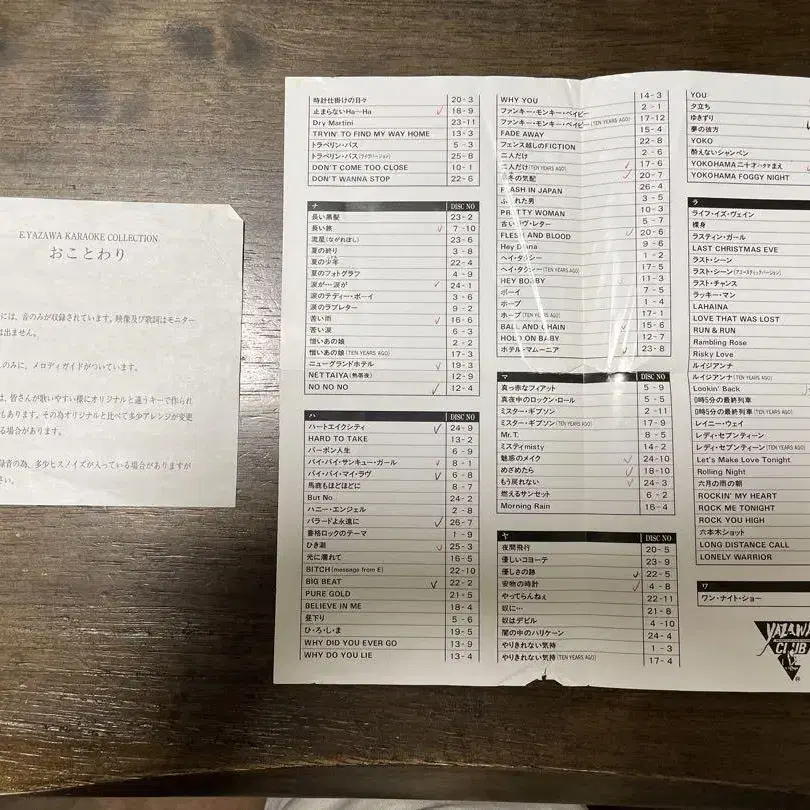 E.YAZAWA KARAOKE COLLECTION
おことわり
には、音のみが収録されています。映像及び歌詞はモニター
は出ません。
のみに、メロディガイドがついています。
は、皆さんが歌いやすい様にオリジナルと違うキーで作られ
もあります。その為オリジナルと比べて多少アレンジが変更
る場合があります。
録音の為、多少ヒスノイズが入っている場合がありますが
さい。
時計仕掛けの日々 20-3
止まらないHa〜Ha 16-9
Dry Martini 23-11
TRYIN' TO FIND MY WAY HOME 13-3
トラベリン・バス 5-3
トラベリン・バス(ライヴバージョン) 25-8
DON'T COME TOO CLOSE 10-1
DON'T WANNA STOP 22-6
ナ DISC NO
長い黒髪 23-2
長い旅 7-10
流星(ながれぼし) 23-6
夏の終り 3-8
夏の少年 22-4
夏のフォトグラフ 4-9
涙が…涙が 24-1
涙のテディー・ボーイ 3-6
涙のラブレター 9-2
苦い雨 16-6
苦い涙 6-3
憎いあの娘 2-2
憎いあの娘(TEN YEARS AGO) 17-3
ニューグランドホテル 19-3
NETTAIYA(熱帯夜) 12-9
NO NO NO 12-4
ハ DISC NO
ハートエイクシティ 24-9
HARD TO TAKE 13-2
バーボン人生 6-9
バイ・バイ・サンキュー・ガール 8-1
バイ・バイ・マイ・ラヴ 6-8
馬鹿もほどほどに 8-7
But No 24-2
ハニー・エンジェル 2-8
バラードよ永遠に 26-7
番格ロックのテーマ 1-9
ひき潮 25-3
光に濡れて 16-5
BITCH(message from E) 22-10
BIG BEAT 22-2
PURE GOLD 21-5
BELIEVE IN ME 18-4
昼下り 5-6
ひ・ろ・し・ま 19-5
WHY DID YOU EVER GO 13-9
WHY DO YOU LIE 13-4
WHY YOU 14-3
ファンキー・モンキー・ベイビー 2-1
ファンキー・モンキー・ベイビー(TEN YEARS AGO) 17-12
FADE AWAY 15-4
フェンス越しのFICTION 22-8
二人だけ 2-6
二人だけ(TEN YEARS AGO) 17-6
冬の気配 20-7
FLASH IN JAPAN 26-4
ふられた男 3-5
PRETTY WOMAN 10-3
古いラヴ・レター 5-7
FLESH AND BLOOD 20-6
Hey Diana 9-6
ヘイ・タクシー 1-2
ヘイ・タクシー(TEN YEARS AGO) 17-5
HEY BOBBY 11-3
ボーイ 7-5
ホープ 1-4
ホープ(TEN YEARS AGO) 17-1
BALL AND CHAIN 15-6
HOLD ON BABY 12-7
ホテル・マムーニア 23-8
マ DISC NO
真っ赤なフィアット 5-9
真夜中のロックン・ロール 5-5
ミスター・ギブソン 2-11
ミスター・ギブソン(TEN YEARS AGO) 17-9
Mr.T. 8-5
ミスティmisty 14-2
魅惑のメイク 24-10
めざめたら 18-10
もう戻れない 24-3
燃えるサンセット 6-2
Morning Rain 16-4
ヤ DISC NO
夜間飛行 20-5
優しいコヨーテ 23-9
優しさの跡 22-5
安物の時計 4-8
やってらんねぇ 22-11
奴に… 21-8
奴はデビル 4-10
闇の中のハリケーン 24-4
やりきれない気持 1-3
やりきれない気持(TEN YEARS AGO) 17-4
YOU
夕立ち
ゆきずり
夢の彼方
YOKO
酔えないシャンペン
YOKOHAMA二十才まえ
YOKOHAMA FOGGY NIGHT
ラ
ライフ・イズ・ヴェイン
裸身
ラスティン・ガール
LAST CHRISTMAS EVE
ラスト・シーン
ラスト・シーン(アコースティックバージョン)
ラスト・チャンス
ラッキー・マン
LAHAINA
LOVE THAT WAS LOST
RUN & RUN
Rambling Rose
Risky Love
ルイジアンナ
ルイジアンナ(TEN YEARS AGO)
Lookin' Back
0時5分の最終列車
0時5分の最終列車(TEN YEARS AGO)
レイニー・ウェイ
レディ・セブンティーン
レディ・セブンティーン(TEN YEARS AGO)
Let's Make Love Tonight
Rolling Night
六月の雨の朝
ROCKIN' MY HEART
ROCK ME TONIGHT
ROCK YOU HIGH
六本木ショット
LONG DISTANCE CALL
LONELY WARRIOR
ワ
ワン・ナイト・ショー
YAZAWA
CLUB